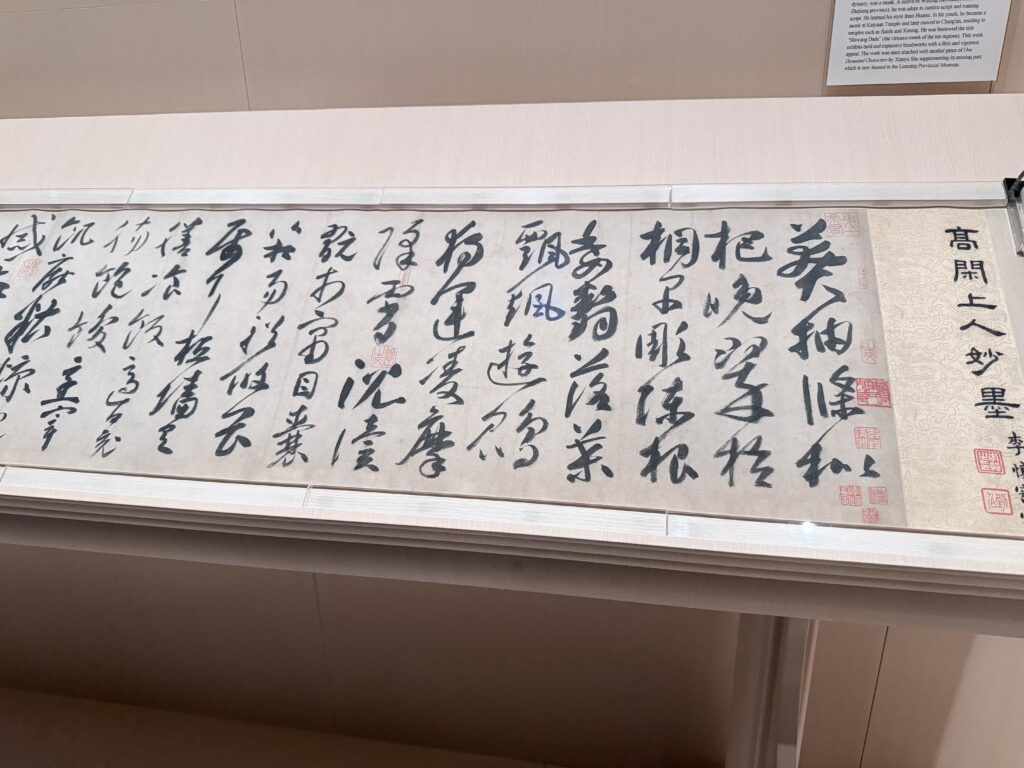 dynasty, was a monk. A native of
Zhejiang province), he was adept in cursive script and running
script. He learned his style from Huaisu. In his youth, he became a
monk at Kaiyuan Temple and later moved to Chang'an, residing in
temples such as Jianfu and Ximing. He was bestowed the title
"Shiwang Dade" (the virtuous monk of the ten regions). This work
exhibits bold and expansive brushworks with a firm and vigorous
appeal. The work was once attached with another piece of One
Thousand Characters by Xianyu Shu supplementing its missing part,
which is now housed in the Liaoning Provincial Museum.
高閑上人妙墨
李
莽抽條枇
杷晚翠梧
桐早彫陳根
委翳落葉
飄颻遊鵾
獨運凌摩
絳霄耽讀
翫市寓目囊
箱易輶攸畏
屬耳垣墻具
膳飡飯適口充
腸飽飫烹宰
飢厭糟糠
戚